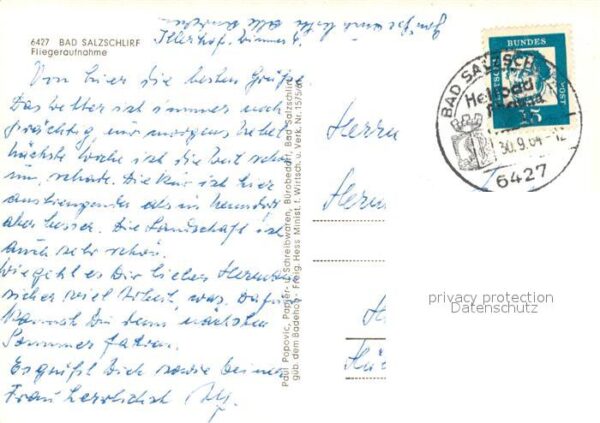 6427 BAD SALZSCHLIRF
Fliegeraufnahme
Illerhof. Zimmer 4.
Von hier die besten Grüße.
Das Wetter ist immer noch
prächtig, nur morgens Nebel
nächste Woche ist die Zeit schon
um, schade. Die Kur ist hier
anstrengender als in
aber besser. Die Landschaft ist
auch sehr schön.
Wie geht es Dir lieber
sicher viel Arbeit, was. Dafür
kannst Du dann nächsten
Sommer fahren.
Es grüßt Dich sowie Deine
Frau herzlichst
Paul Popovic, Papier- u. Schreibwaren, Bürobedarf, Bad Salzschlirf
güb. dem Badehof - Freig. Hess Minist. f. Wirtsch. u. Verk. Nr.
Herrn
DEUTSCHE BUNDESPOST
15
BAD SALZSCH
Heilbad
30.9.64-12
6427
privacy protection
Datenschutz